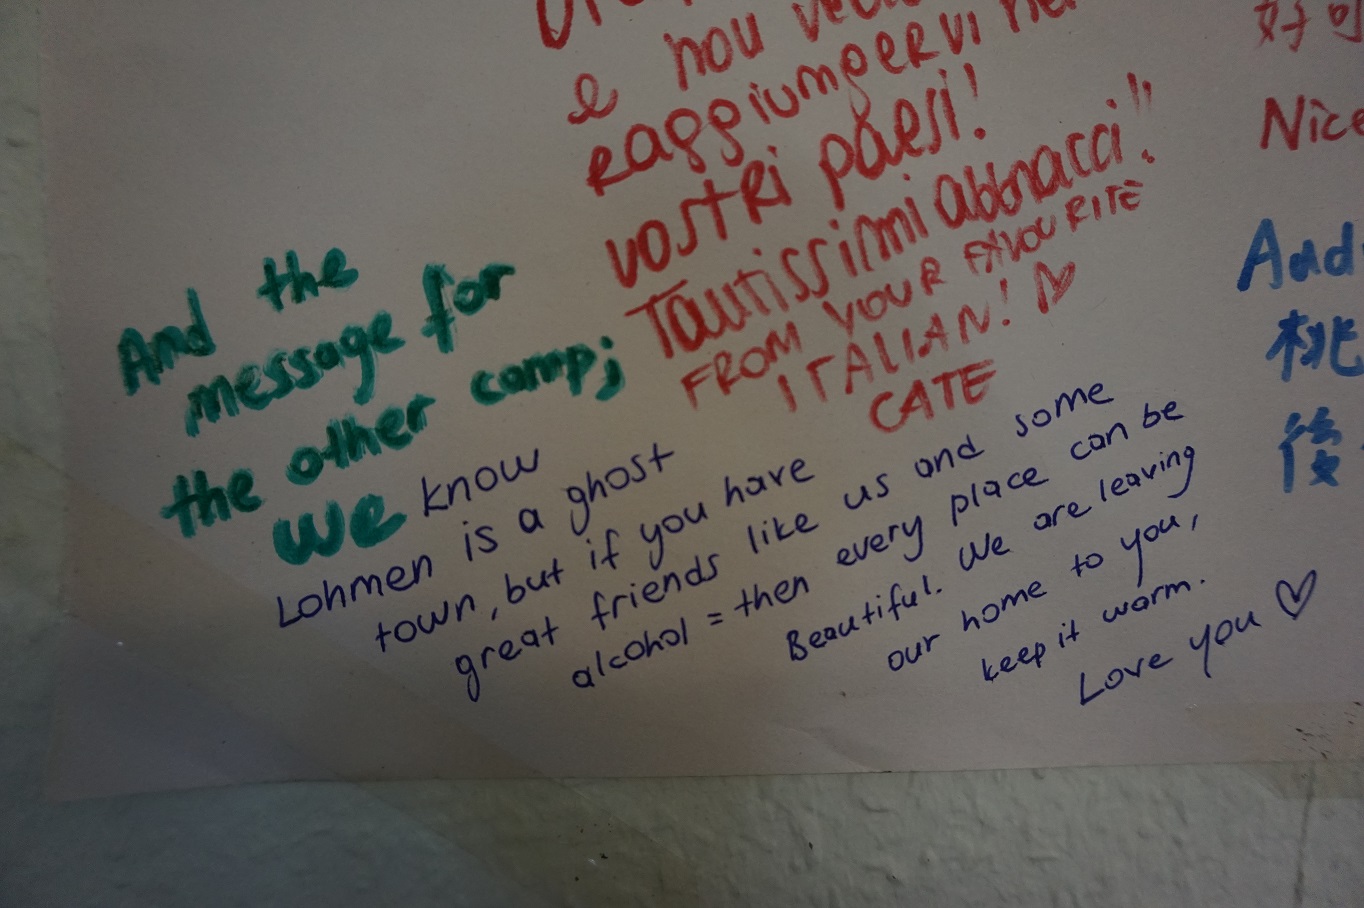 e non
raggiungervi
vostri paesi!
Tantissimi abbracci!!
FROM YOUR FAVOURITE
ITALIAN! ♡
CATE
And the
message for
the other camp;
we know
Lohmen is a ghost
town, but if you have
great friends like us and some
alcohol = then every place can be
Beautiful. We are leaving
our home to you,
keep it warm.
Love you ♡
好可
Nice
And
桃
後